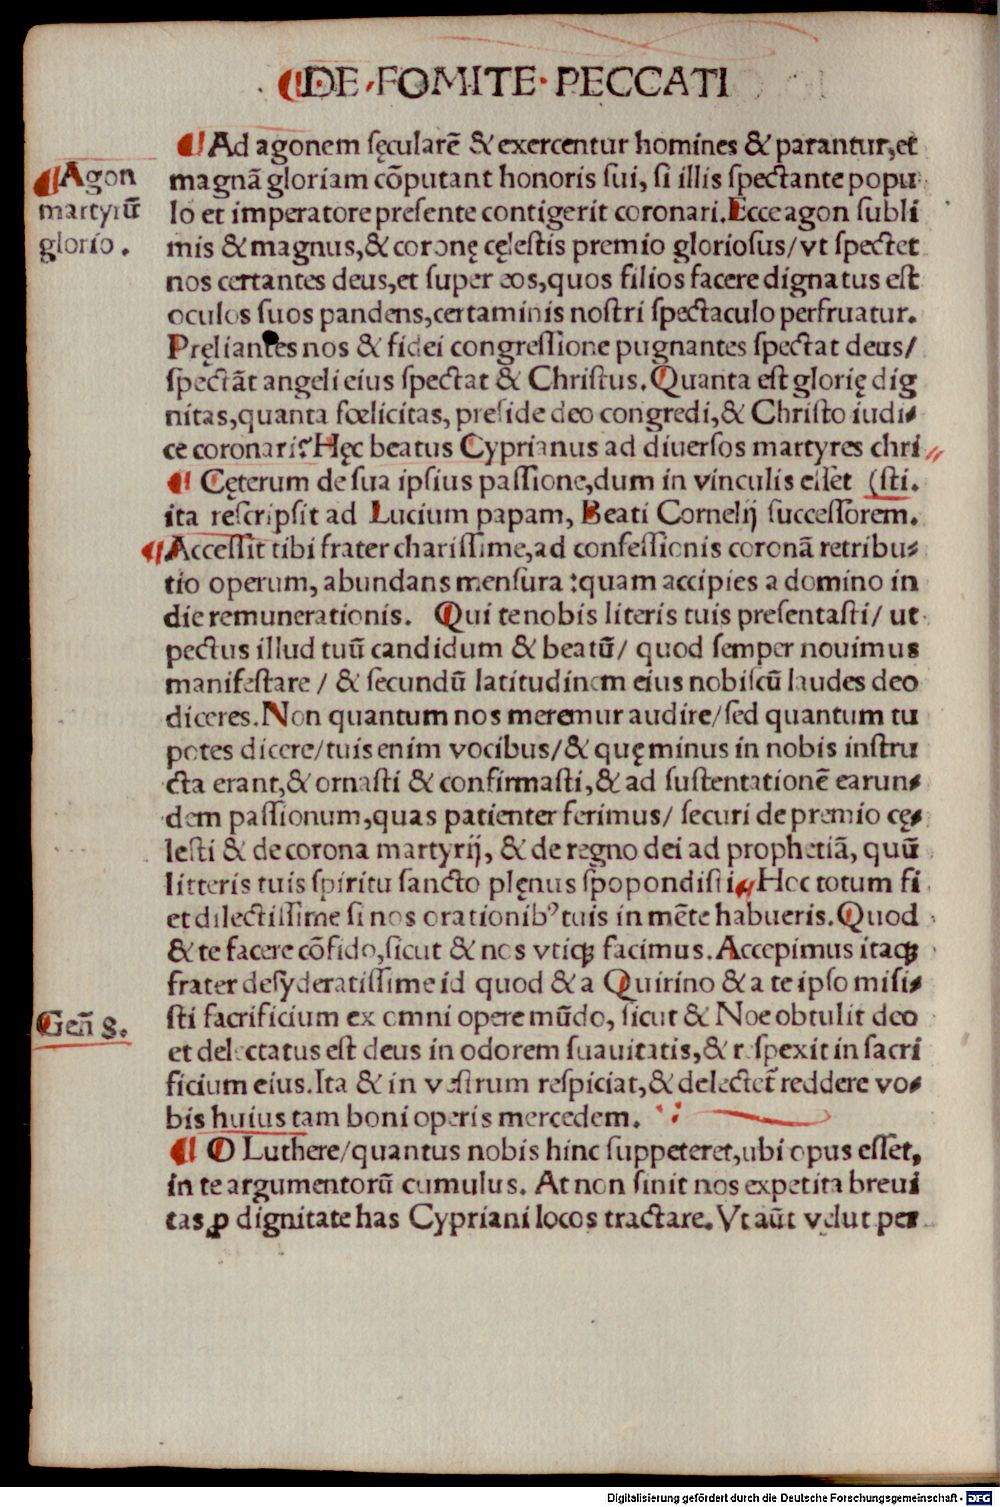 ¶DE FOMITE PECCATI
¶Ad agonem sęcularē & exercentur homines & parantur, et
magnā gloriam cōputant honoris sui, si illis spectante popu
lo et imperatore presente contigerit coronari. Ecce agon subli
mis & magnus, & coronę cęlestis premio gloriosus/ vt spectet
nos certantes deus, et super eos, quos filios facere dignatus est
oculos suos pandens, certaminis nostri spectaculo perfruatur.
Pręliantes nos & fidei congressione pugnantes spectat deus/
spectāt angeli eius spectat & Christus. Quanta est glorię dig
nitas, quanta fœlicitas, preside deo congredi, & Christo iudi⸗
ce coronari? Hęc beatus Cyprianus ad diuersos martyres chri
¶ Cęterum de sua ipsius passione, dum in vinculis esset (sti.
ita rescripsit ad Lucium papam, Beati Cornelij successorem.
¶Accessit tibi frater charissime, ad confessionis coronā retribu⸗
tio operum, abundans mensura : quam accipies a domino in
die remunerationis. Qui te nobis literis tuis presentasti/ ut
pectus illud tuū candidum & beatū/ quod semper nouimus
manifestare / & secundū latitudinem eius nobiscū laudes deo
diceres. Non quantum nos meremur audire/ sed quantum tu
potes dicere/ tuis enim vocibus/ & quę minus in nobis instru
cta erant, & ornasti & confirmasti, & ad sustentationē earun⸗
dem passionum, quas patienter ferimus/ securi de premio cę⸗
lesti & de corona martyrij, & de regno dei ad prophetiā, quū
litteris tuis spiritu sancto plęnus spopondisti. Hoc totum fi
et dilectissime si nos orationibꝰ tuis in mēte habueris. Quod
& te facere cōfido, sicut & nos vtiqꝫ facimus. Accepimus itaqꝫ
frater desyderatissime id quod & a Quirino & a te ipso misi⸗
sti sacrificium ex omni opere mūdo, sicut & Noe obtulit deo
et delectatus est deus in odorem suauitatis, & respexit in sacri
ficium eius. Ita & in vestrum respiciat, & delectet̄ reddere vo⸗
bis huius tam boni operis mercedem.
¶ O Luthere/ quantus nobis hinc suppeteret, ubi opus esset,
in te argumentorū cumulus. At non sinit nos expetita breui
tas, ꝓ dignitate has Cypriani locos tractare. Vt aūt velut per
¶Agon
martyrū
glorio.
Geñ 8.
Digitalisierung gefördert durch die Deutsche Forschungsgemeinschaft - DFG